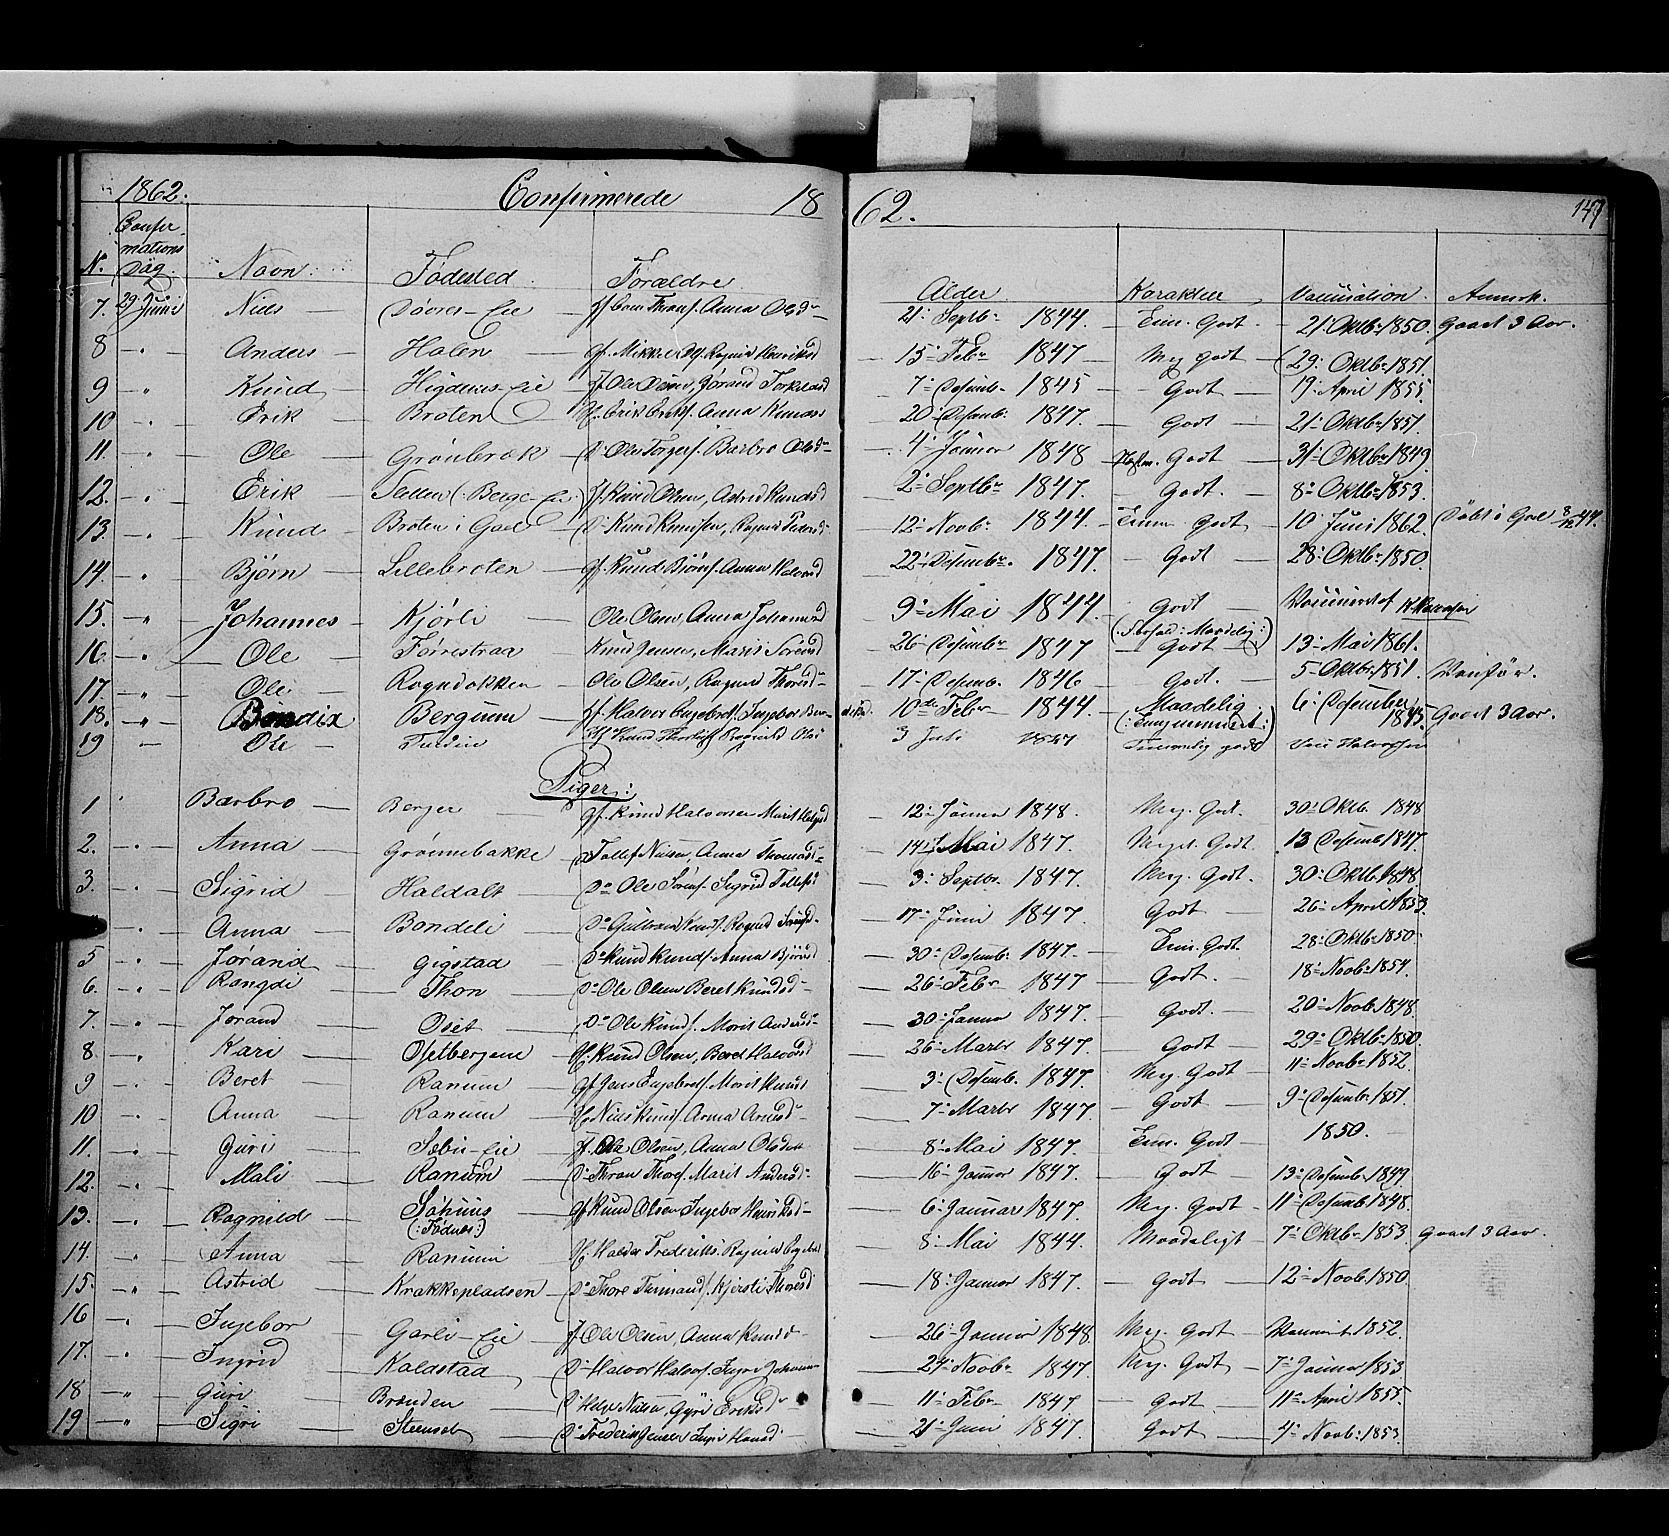 1862. Confirmerede 1862. 147
N. Confirmations Dag. Navn. Fødested. Forældre Alder Karakteer Vaccination. Anmrk.
7. 29 Juni Niels Eie Thons. Anna Olsd 21 Septbr 1844. Em. Godt. 21 Oktbr 1850. Gaaet 3 Aar.
8 " Anders Halen Mikkel Ragnid Henriksd 15 Febr 1847 Meg godt 29 Oktbr 1851.
9 " Knud Eie Ole Jørand Torkelsd 7 Desemb. 1845 Godt 19 April 1855.
10 " Erik Broten Anna Knudsd 20 Desemb. 1847. Godt 21 Oktbr 1851.
11. " Ole Grønebræk Ole Barbro Olsd 4 Januar 1848 Godt 31 Oktbr 1849.
12. " Erik (Berge-Eie) Knud Olsen, Astrid Knudsd 2 Septbr 1847. Godt. 8 Oktbr 1853.
13. " Knud Broten i Gol Knud Knudsen, 12 Novb. 1844. Godt 10 Juni 1862. Døbt i Gol 8/12 44.
14. " Bjørn Lillebroten Knud Bjørns. Anna Halvorsd 22 Desembr. 1847. Godt 28 Oktbr 1850.
15. " Johannes Kjørli Ole Olsen, Anna Johannesd 9 Mai 1844. Godt
16. " Ole Førrestraa Knud Jensen, Marit 26 Desembr 1847 (: Maadelig:) Godt 13 Mai 1861.
17. " Ole Rogndokken Ole Olsen, Ragnid Thoresd 17 Desemb. 1846 Godt. 5 Oktbr 1851. Vanfør.
18. " Bendix Bergum Halvor Engebrets. Ingebor 10de Febr 1844. Maadelig 6 Desember 1845. Gaaet 3 Aar.
19 Ole 3 Juli Temmelig godt Halvorsen
Piger:
1 Barbro Berger Knud Halvorsen Marit Helgesd 12 Januar 1848. Meg. Godt. 30 Oktb. 1848
2. " Anna Grønnebakke Tollef Nielsen, Anna Thomasd 14 Mai 1847. Meget. Godt. 13 Desemb 1847.
3. " Sigrid Haldalt Ole Sørens. Sigrid Tollefsd 3 Septbr. 1847. Meg. Godt. 30 Oktb. 1848
" Anna Bondeli Ragnid 17 Juni 1847. Godt 26 April 1853
5 " Jørand Gigstad Knud Knuds. Anna Bjørnsd 30 Desemb. 1847. Em. Godt. 28 Oktb. 1850
6. " Rangdi Thon Ole Olsen Beret Knudsd 26 Febr 1847 Godt. 18 Novb. 1854.
7. " Jorand Oset Ole Knuds. Marit Andersd 30 Januar 1847. Godt. 20 Novb. 1848.
8. " Kari Osetbergene Knud Olsen, Beret Halvorsd 26 Marts 1847. Godt 29 Oktbr 1850.
9 " Beret Ranum Jens Engebrets. Marit Knudsd 3 Desemb. 1847. Meg. Godt 11 Novb. 1852.
10 " Anna Ranum Niels Knuds. Anna Arnesd 7 Marts 1847. Godt 9 Desemb. 1851.
11. " Guri Sæbu-Eie Ole Olsen, Anna Olsdatt 8 Mai 1847. Em. Godt 1850.
12. " Mali Ranum Thron Thors. Marit Andersd 16 Januar 1847. Godt 13 Desemb. 1849.
13. " Ragnild (:Fødnæs:) Knud Olsen Ingebor Henriksd 6 Januar 1847. Meg. Godt 11 Desemb 1848.
14. " Anna Ranum Halvor Frederiks. Ragnild 8 Mai 1844. Maadeligt 7 Oktb. 1853 Gaaet 3 Aar.
15. " Astrid Krakkepladsen Thore Kjersti Thoresd 18 Januar 1847. Godt 12 Novb. 1850
16 " Ingebor Garli-Eie Ole Olsen, Anna Knudsd 26 Januar 1848. Meg. Godt 1852.
17. " Ingrid Kaldstad Halvor Halvors. 27 Novbr 1847. Meg. Godt 7 Januar 1853
18 " Guri Brenden Helge Nilsen, Gyri Eriksd 11 Febr 1847 Godt 11 April 1855.
19 " Sigri Steenset Frederik Jensen Hansd 21 Juni 1847. Godt 4 Novb. 1853.